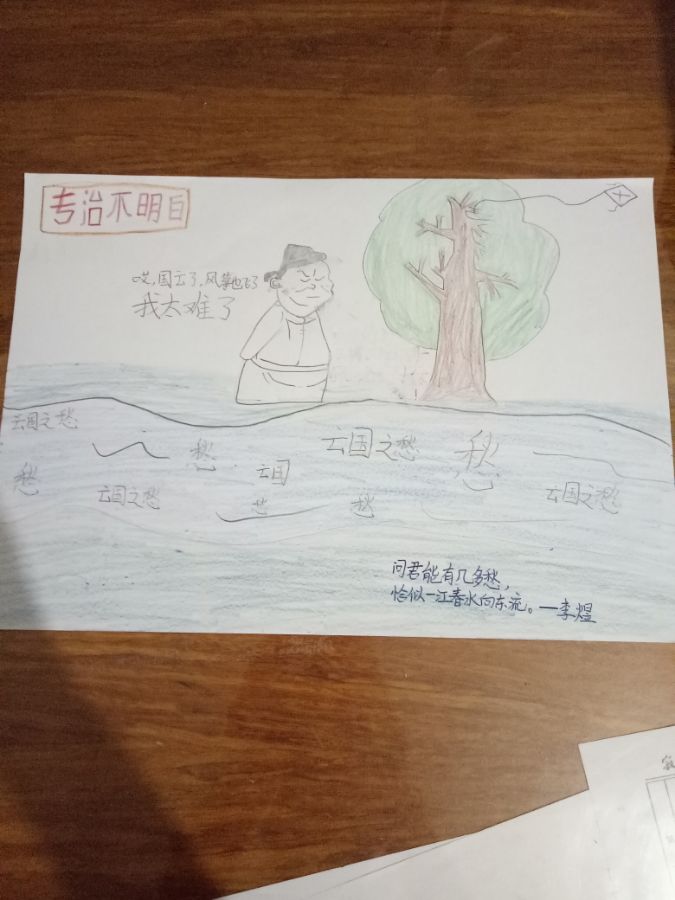 专治不明白
哎,国云了,风筝也飞了
我太难了
云国之愁
愁
愁
云国之愁
云国
云国之愁
愁
愁
云国之愁
问君能有几多愁,
恰似一江春水向东流。—李煜